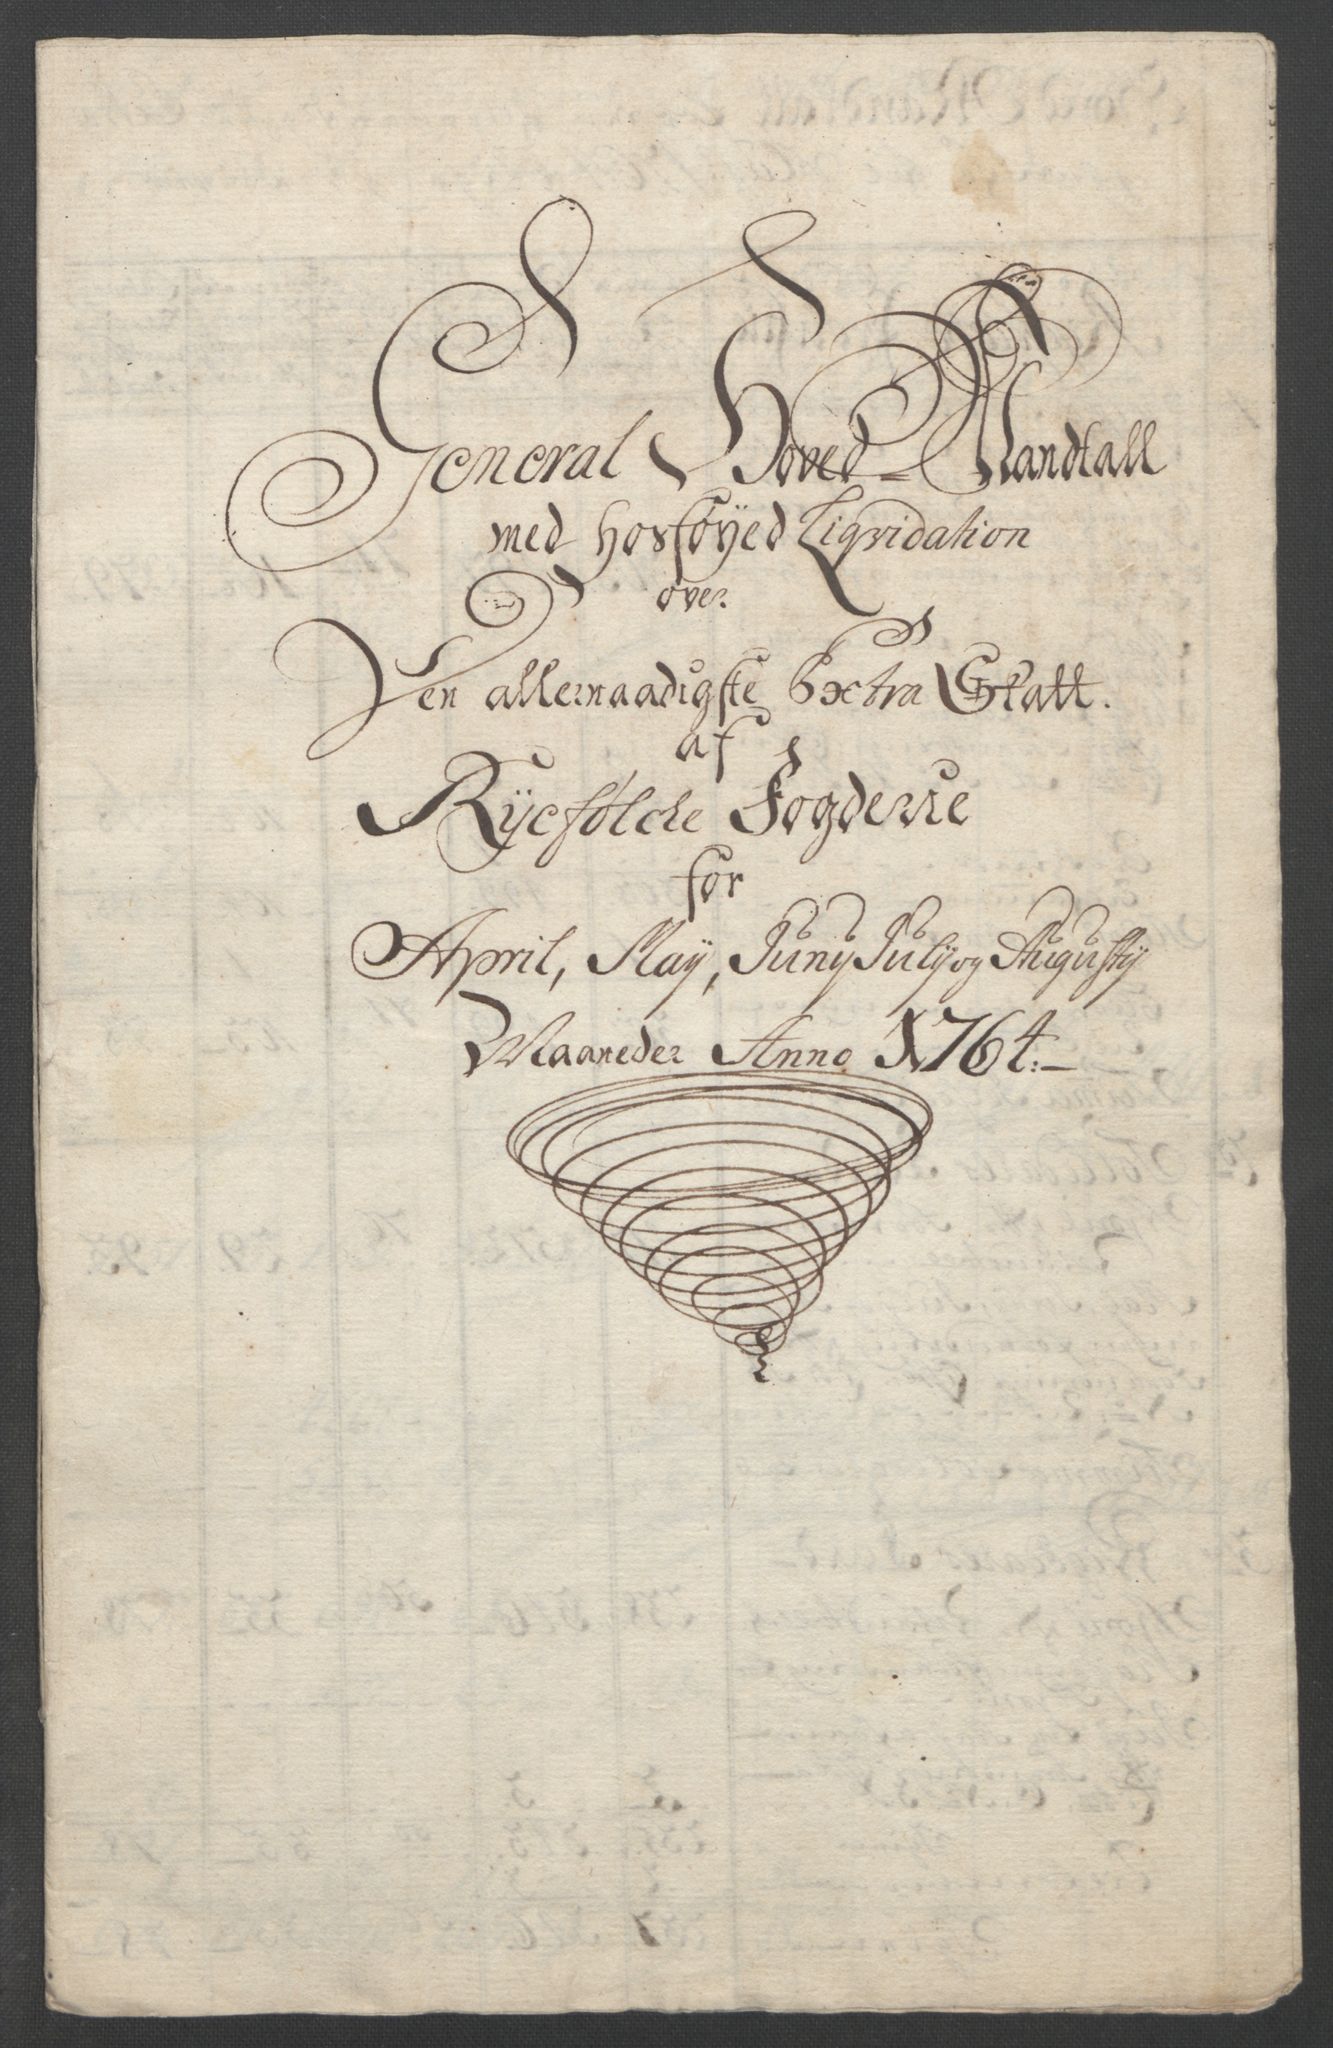 General Hoved-Mandtall
med hosføyed Liqvidation
over
Den allernaadigste Extra Skatt.
af
Rycfølche Fogderie
for
April, May, Juny July og Augusty
Maaneder Anno 1764:-